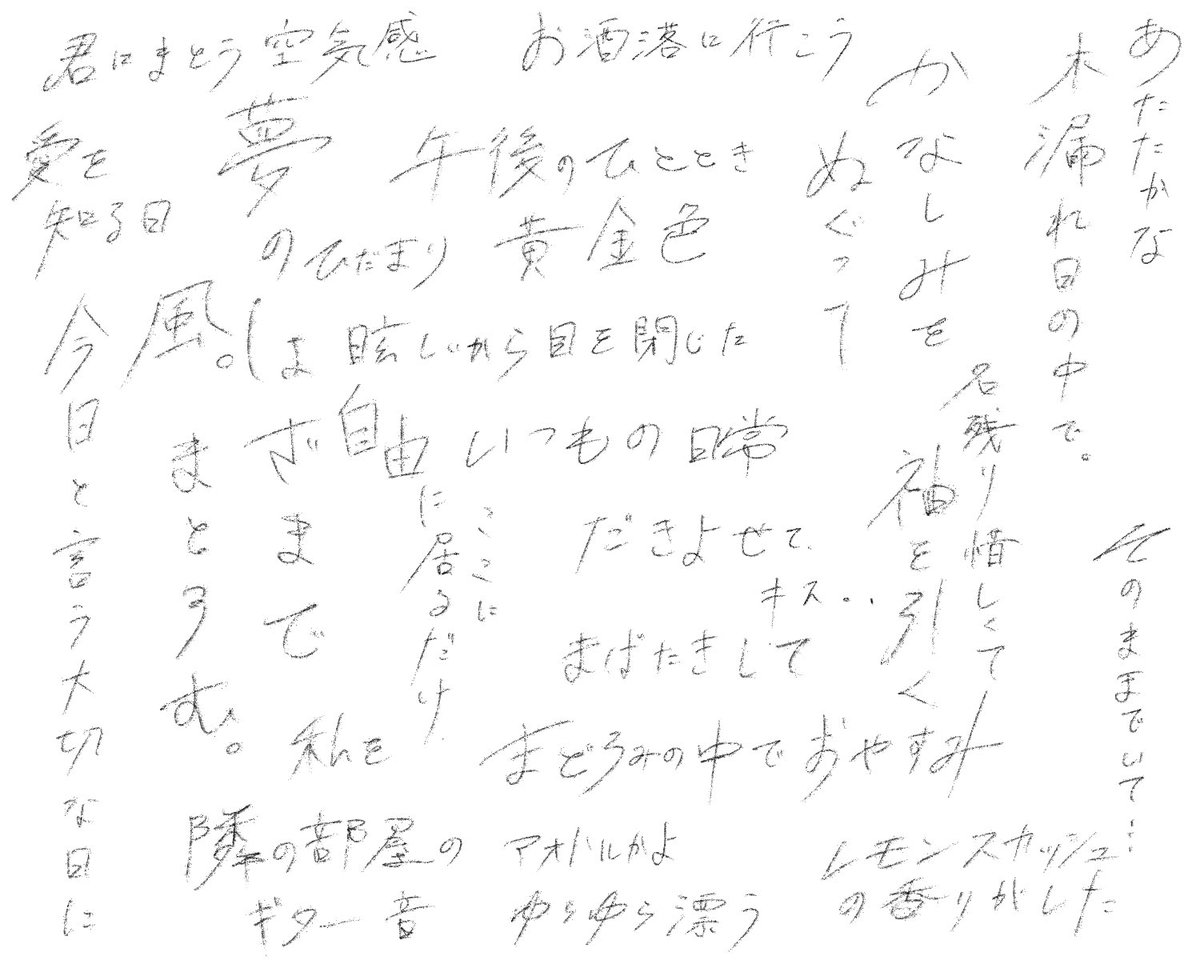 君にまとう空気感
お洒落に行こう
あたたかな
木漏れ日の中で。
かなしみを
ぬぐって
愛を
知る日
夢
のひだまり
午後のひととき
黄金色
風。
は
眩しいから目を閉じた
今日と言う大切な日に
まとろむ。
ざまで
自由
に居るだけ
ここに
いつもの日常
だきよせて、
キス..
まばたきして
名残り惜しくて
袖を引く
そのままでいて…
私を
まどろみの中でおやすみ
隣の部屋の
ギター音
ゆらゆら漂う
レモンスカッシュ
の香りがした